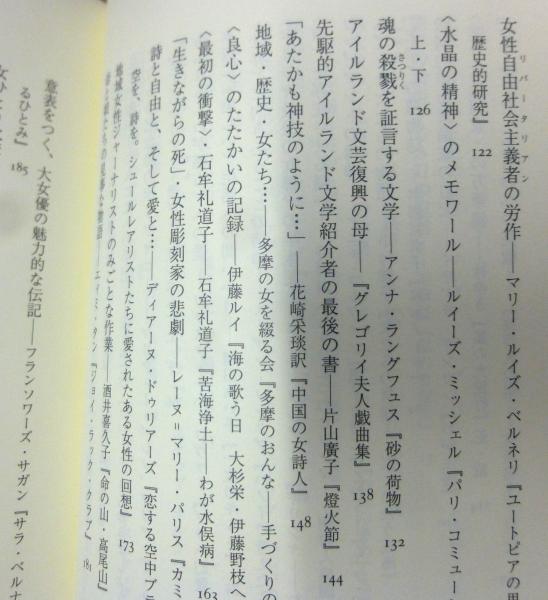 女性自由社会主義者の労作――マリー・ルイズ・ベルネリ『ユートピアの思
リバータリアン
歴史的研究』 122
〈水晶の精神〉のメモワール――ルイーズ・ミッシェル『パリ・コミュー
上・下 126
魂の殺戮を証言する文学――アンナ・ラングフュス『砂の荷物』 132
さつりく
アイルランド文芸復興の母――『グレゴリイ夫人戯曲集』 138
先駆的アイルランド文学紹介者の最後の書――片山廣子『燈火節』 144
「あたかも神技のように…」――花崎采琰訳『中国の女詩人』 148
地域・歴史・女たち……――多摩の女を綴る会『多摩のおんな――手づくりの
〈良心〉のたたかいの記録――伊藤ルイ『海の歌う日 大杉栄・伊藤野枝へ
〈最初の衝撃〉・石牟礼道子――石牟礼道子『苦海浄土――わが水俣病』 163
「生きながらの死」・女性彫刻家の悲劇――レーヌ＝マリー・パリス『カミ
詩と自由と、そして愛と…――ディアーヌ・ドゥリアーズ『恋する空中ブラ
空を、詩を。シュールレアリストたちに愛されたある女性の回想』 173
地域女性ジャーナリストのみごとな作業――酒井喜久子『命の山・高尾山』
な物語――エィミ・タン『ジョイ・ラック・クラブ』 181
意表をつく、大女優の魅力的な伝記――フランソワーズ・サガン『サラ・ベルナ
るひとみ』 185